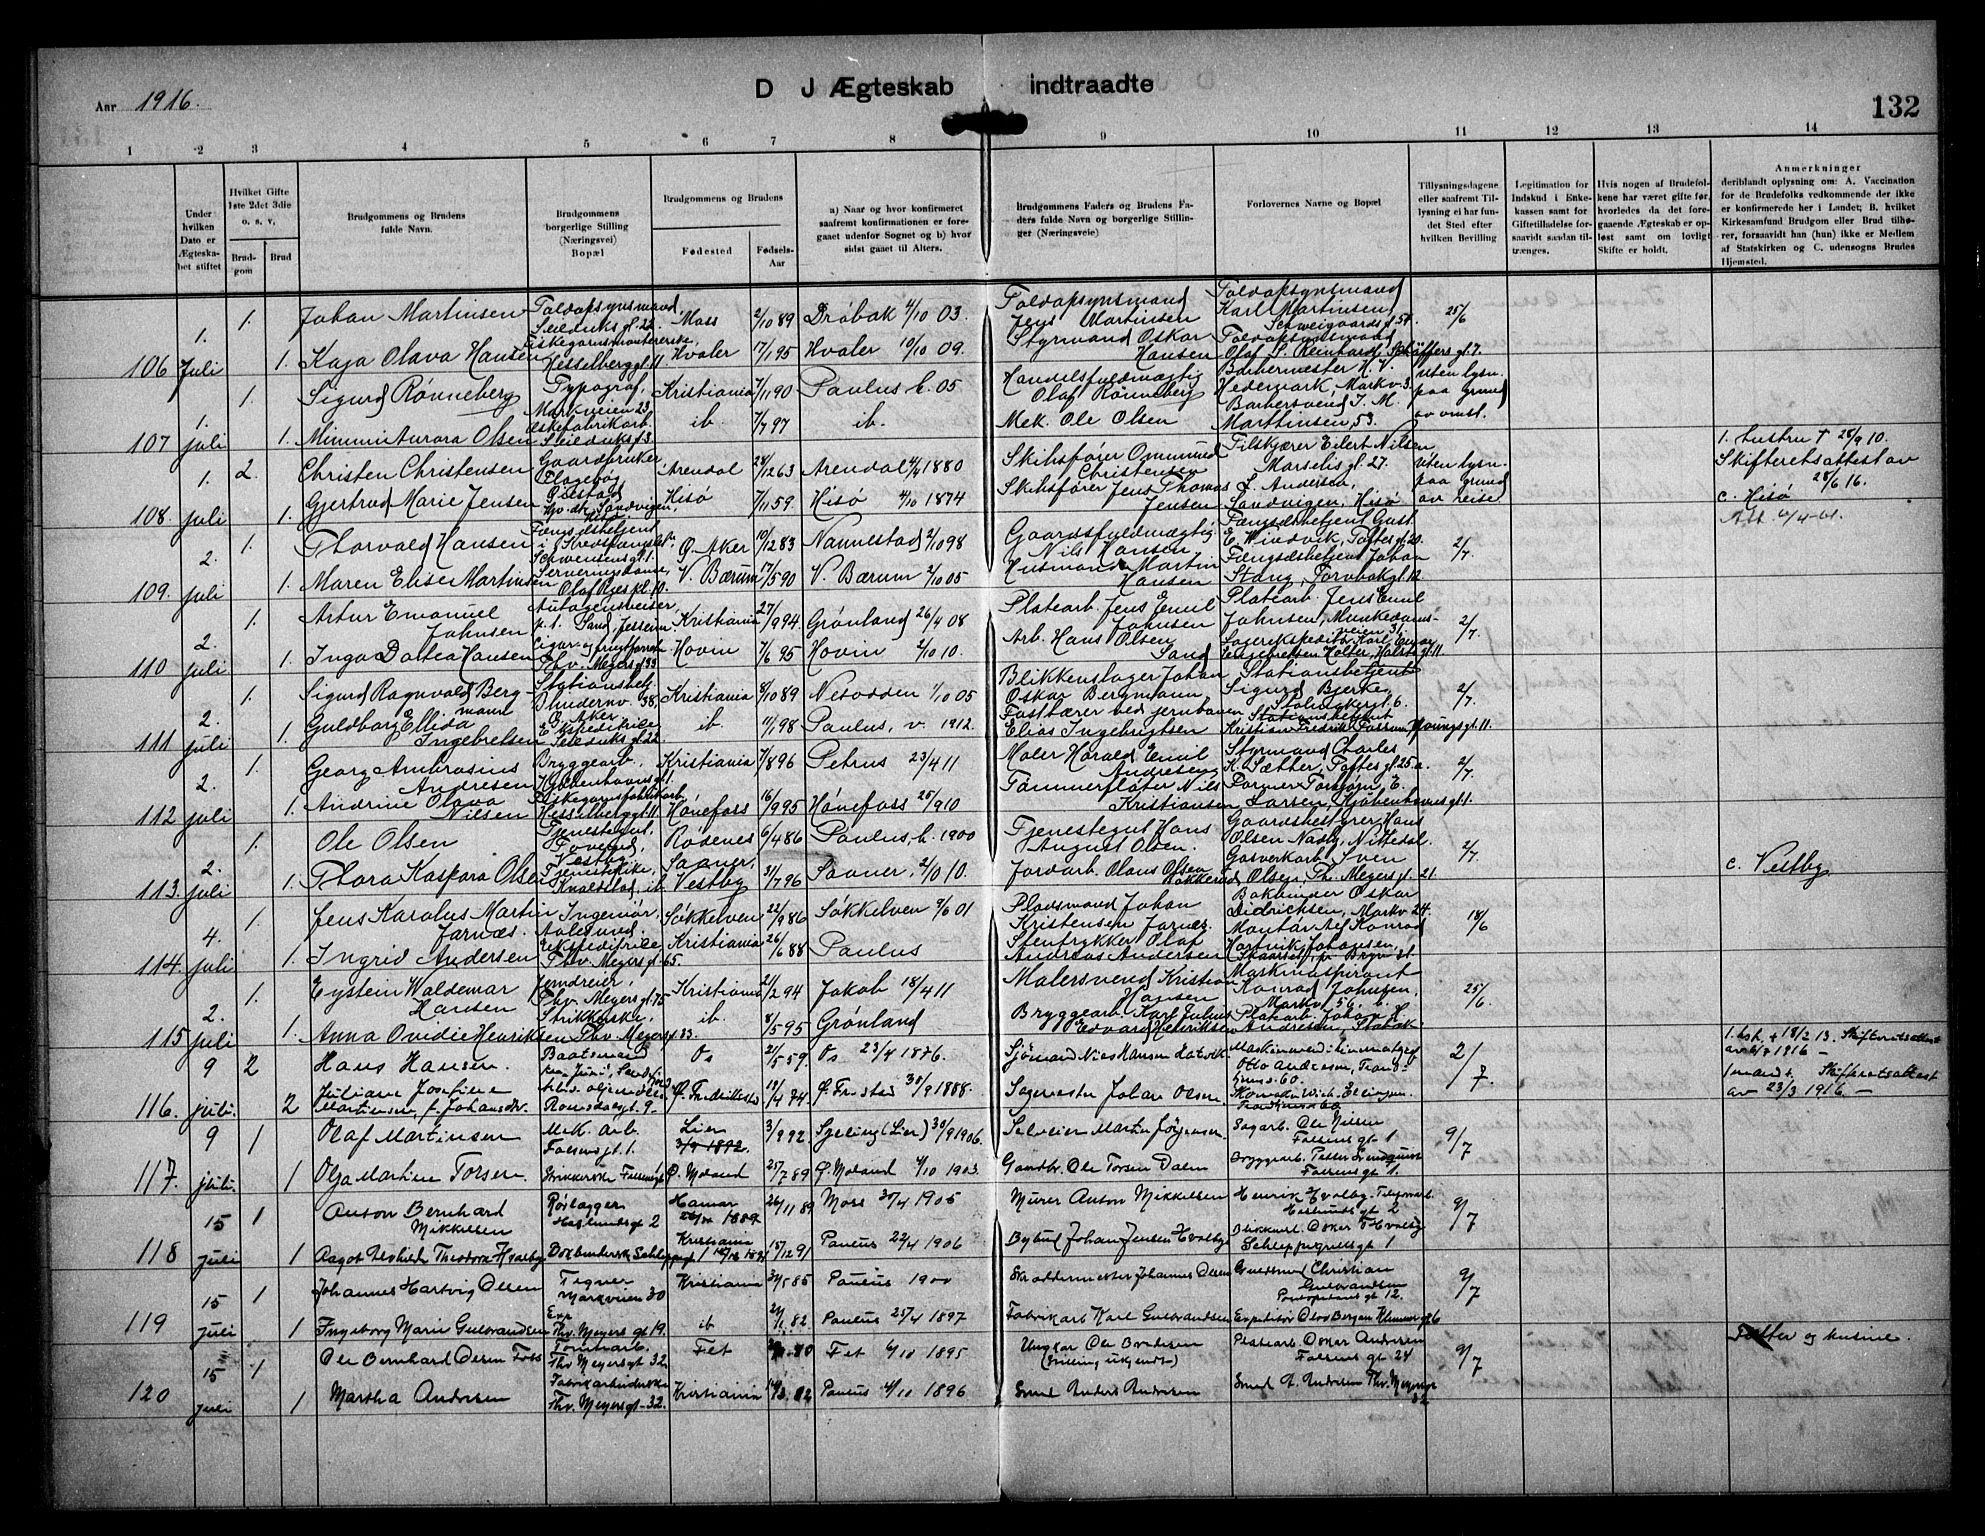 Aar 1916.
D J Ægteskab indtraadte
132
1 2 3 4 5 6 7 8 9 10 11 12 13 14
Under hvilken Dato er Ægteskabet stiftet
Hvilket Gifte 1ste 2det 3die o. s. v,
Brudgom
Brud
Brudgommens og Brudens fulde Navn.
Brudgommens borgerlige Stilling (Næringsvei) Bopæl
Brudgommens og Brudens
Fødested
Fødsels-Aar
a) Naar og hvor konfirmeret saafremt konfirmationen er foregaaet udenfor Sognet og b) hvor sidst gaaet til Alters.
Brudgommens Faders og Brudens Faders fulde Navn og borgerlige Stillinger (Næringsveie)
Forlovernes Navne og Bopæl
Tillysningsdagene eller saafremt Tillysning ei har fundet Sted efter hvilken Bevilling
Legitimation for Indskud i Enkekassen samt for Giftetilladelse forsaavidt saadan tiltrænges.
Hvis nogen af Brudefolkene har været gift før, hvorledes da det foregaaende Ægteskab er opløst samt om lovligt Skifte er holdt.
Anmerkninger deriblandt oplysning om: A. Vaccination for de Brudefolks vedkommende der ikke er konfirmerede her i Landet; B. hvilket Kirkesamfund Brudgom eller Brud tilhører, forsaavidt han (hun) ikke er Medlem af Statskirken og C. udensogns Brudes Hjemsted.
1. 1. Johan Martinsen Toldopsynsmand, Seilduksgt. 22. Moss 2/10 89 Drøbak 4/10 03. Toldopsynsmand Jens Martinsen Toldopsynsmand Karl Martinsen, Schweigaardsgt 57. 25/6
106 Juli 1. Kaja Olava Hansen Hesselberggt. 11 Hvaler 17/1 95 Hvaler 10/10 09. Styrmand Oskar Hansen Toldopsynsmand Olaf S. Reinhardt, Schäffersgt. 7.
1. 1. Sigurd Rønneberg Typograf, Markveien 23 Kristiania 7/11 90 Paulus k. 05 Handelsfuldmægtig Olaf Rønneberg Barbermester H. V. Hedemark Markv. 3. uten lysn. paa grund av omst.
107 juli 1. Mimmi Aurora Olsen Æskefabrikarb. Seilduksgt. 3 ib. 7/7 97 ib. Mek. Ole Olsen Barbersvend J. M. Martinsen 53.
1. 2. Christen Christensen Gaardbruker Arendal 28/12 63 Arendal 4/4 1880 Skibsfører Omund Christensen Eilert Nilsen Marselis gt. 27. uten lysn. paa grund av reise 1. hustru † 28/9 10. Skifteretsattest av 28/6 16.
108 juli 1. Gjertrud Marie Jensen Sandvigen, Hisø 7/11 59 Hisø 4/10 1874 Skibsfører Jens Thomas Jensen L. Anderson, Sandvigen, Hisø c. Hisø
2. 1. Thorvald Hansen Fængselsbetjent Schwensensgt. 1. Ø. Aker 10/12 83 Nannestad 2/10 98 Gaardsfuldmægtig Nils Hansen Fængselsbetjent Gust. E. Windvik, Toftesgt. 20. 2/7.
109. juli 1. Maren Elise Martinsen Serveringsdame, Olaf Ryes pl. 10. V. Bærum 17/5 90 V. Bærum 2/10 05 Husmand Martin Hansen Fængselsbetjent Johan Stang, Torvbakgt. 12.
2. 1. Artur Emanuel Johnsen Kristiania 27/9 94 Grønland 26/4 08 Platearb. Jens Emil Johnsen Platearb. Jens Emil Johnsen, Munkedamsveien 31 2/7.
110 juli 1. Inga Dortea Hansen Thv. Meyersgt 33 Hovin 7/6 95 Hovin 2/10 10. Arb. Hans Olsen Sand Lagerekspeditør Karl Einar Ingebretsen Holter,
2. 1. Sigurd Ragnvald Bergmann Stationsbetj. Kristiania 8/10 89 Nesodden 1/10 05 Blikkenslager Johan Oskar Bergmann Stationsbetjent Sigurd Bjerke, Stolmakergt. 6. 2/7
111 juli 1. Guldborg Ellida Ingebretsen Ekspeditrice Seilduksgt. 22 ib 11/1 98 Paulus, v. 1912. Fastbærer ved jernbanen Elias Ingebrigtsen Stationsbetjent Kristian Fredrik
2. 1. Georg Ambrosius Andresen Bryggearb., Kjøbenhavnsgt. 1. Kristiania 7/8 96 Petrus 23/4 11 Maler Harald Emil Andresen Styrmand Charles K. Sætter, Toftesgt. 25 a. 2/7
112 juli 1. Andrine Olava Nilsen Fiskegarnsfabrikarb. Hesselberggt. 11 Hønefoss 16/9 95 Hønefoss 25/9 10 Tømmerfløter Nils Kristiansen Former Torbjørn E. Larsen, Kjøbenhavnsgt. 1.
2. 1. Ole Olsen Tjenestegut, Vestby. Rødenes 6/4 86 Paulus, k. 1900 Tjenestegut Hans August Olsen. Gaardsbestyrer Hans Olsen Nittedal. 2/7.
113. juli 1. Thora Kaspara Olsen Tjenestepike, Saaner, Vestby 31/7 96 Saaner, 2/10 10. Jordarb. Olaus Olsen Gasverkarb. Sven Olsen Th. Meyersgt. 21. c. Vestby
4. 1. Jens Karolus Martin Jarnæs. Ingeniør, Aalesund. Søkkelven 22/9 86 Søkkelven 9/6 01 Pladsmand Johan Kristensen Jarnæs. Bokbinder Oskar Didricksen, Markv 24. 18/6
114. juli 1. Ingrid Andersen Ekspeditrice Thv. Meyersgt. 65. Kristiania 26/6 88 Paulus Stentrykker Olaf Andreas Andersen Montør Alf Konrad Hartvik Johansen,
2. 1. Eystein Waldemar Hansen Jerndreier, Thv. Meyersgt. 75 Kristiania 21/2 94 Jakob 18/4 11 Malersvend Kristian Hansen Maskinaspirant Konrad Johnsen, Markv 56. b. 25/6.
115 juli 1. Anna Ovidie Henriksen Strikkerske, Thv. Meyersgt. 33. ib. 8/5 95 Grønland Bryggearb. Karl Julius Edvard Henriksen Platearb. Johan H. Andresen, Stabæk.
9 2 Hans Hansen. Baatsmand Os 21/5 59. Os 23/4 1876. Sjømand Nils Hansen Otto Andersen, Trondhjemsv. 60. 2/7. Skifteretsattest 1916 –
116. juli. 2 Juliane Josefine Martinsen f. Johansdtr. Romsdalsgt. 9. Ø. Fredrikstad 18/4 74 Ø. Frsted 30/9 1888. Sagmester Johan Olsen Trondhjemsv 60 Skifteretsattest av 23/3 1916 –
9 1 Olaf Martinsen Mek. Arb. Falsensgt. 1. Lier 3/9 1892 3/9 92 Sjeling (Lier) 30/9 1906. Selveier Martin Jørgensen Sagarb. Ole Nilsen Falsens gt 1 9/7
117. juli. 1 Olga Martine Torsen. Strikkerske Ø. Moland 25/7 89 Ø. Moland 4/10 1903. Gaardbr. Ole Torsen Dalen Bryggearb. Petter Falsens gt 1.
15 1 Anton Bernhard Mikkelsen Rørlægger 2 Hamar 26/11 1889 26/11 89 Moss 30/4 1905 Murer Anton Mikkelsen Henrik Hvalby 2 9/7
118 juli 1 Aagot Theodora Hvalby Kristiania 15/12 1891 15/12 91 Paulus 22/4 1906 Bybud Johan Jensen Hvalbye Oskar Hvalby Schleppegrellsgt 1
15 1 Johannes Hartvig Olsen Tegner Markveien 30 Kristiania 85 Paulus 1900 Skreddermester Johannes Olsen Guldsmed Christian Gulbrandsen 12. 9/7
119 juli 1 Ingeborg Marie Gulbrandsen Exp Thv. Meyers gt 19. ib 82 Paulus 25/4 1897 Fabrikarb Karl Gulbrandsen Expeditør Olav Bergan
15 1 Ole Bernhard Olsen Foss Thv Meyersgt 32 Fet 80 Fet 6/10 1895 Ungkar Ole Bredesen (Stilling ukjendt) Platearb Oskar Andersen Falsens gt 24 9/7 Fætter og kusine.
120 juli 1 Martha Andersen Fabrikarbeiderske Thv. Meyersgt – 32. Kristiania 82 Paulus 4/10 1896 Smed Anders Andersen Smed A. Andersen Thv. Meyersgt 32